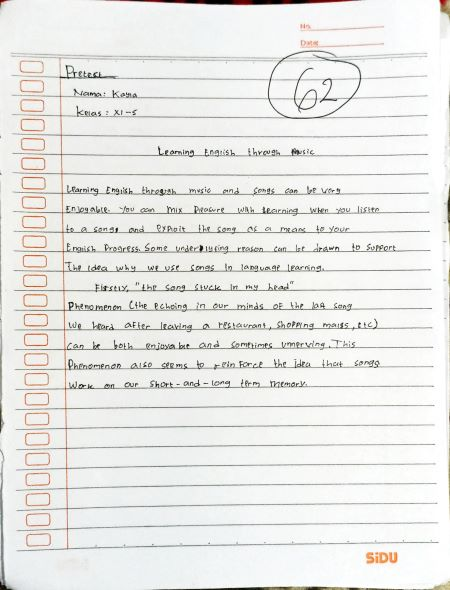 No.
Date:
Pretest
62
Nama: Kayla
Kelas : XI-5
Learning English through Music
Learning English through music and songs can be very
Enjoyable. You can mix Pleasure with Learning when you listen
to a songs and exploit the song as a means to your
English Progress. Some underlying reason can be drawn to support
The idea why we use songs in language learning.
Firstly, "the song stuck in my head"
Phenomenon (the echoing in our minds of the last song
We heard after leaving a restaurant, shopping malls, etc)
can be both enjoyable and sometimes unnerving. This
Phenomenon also seems to reinforce the idea that songs
Work on our short-and-long term memory.
SiDU